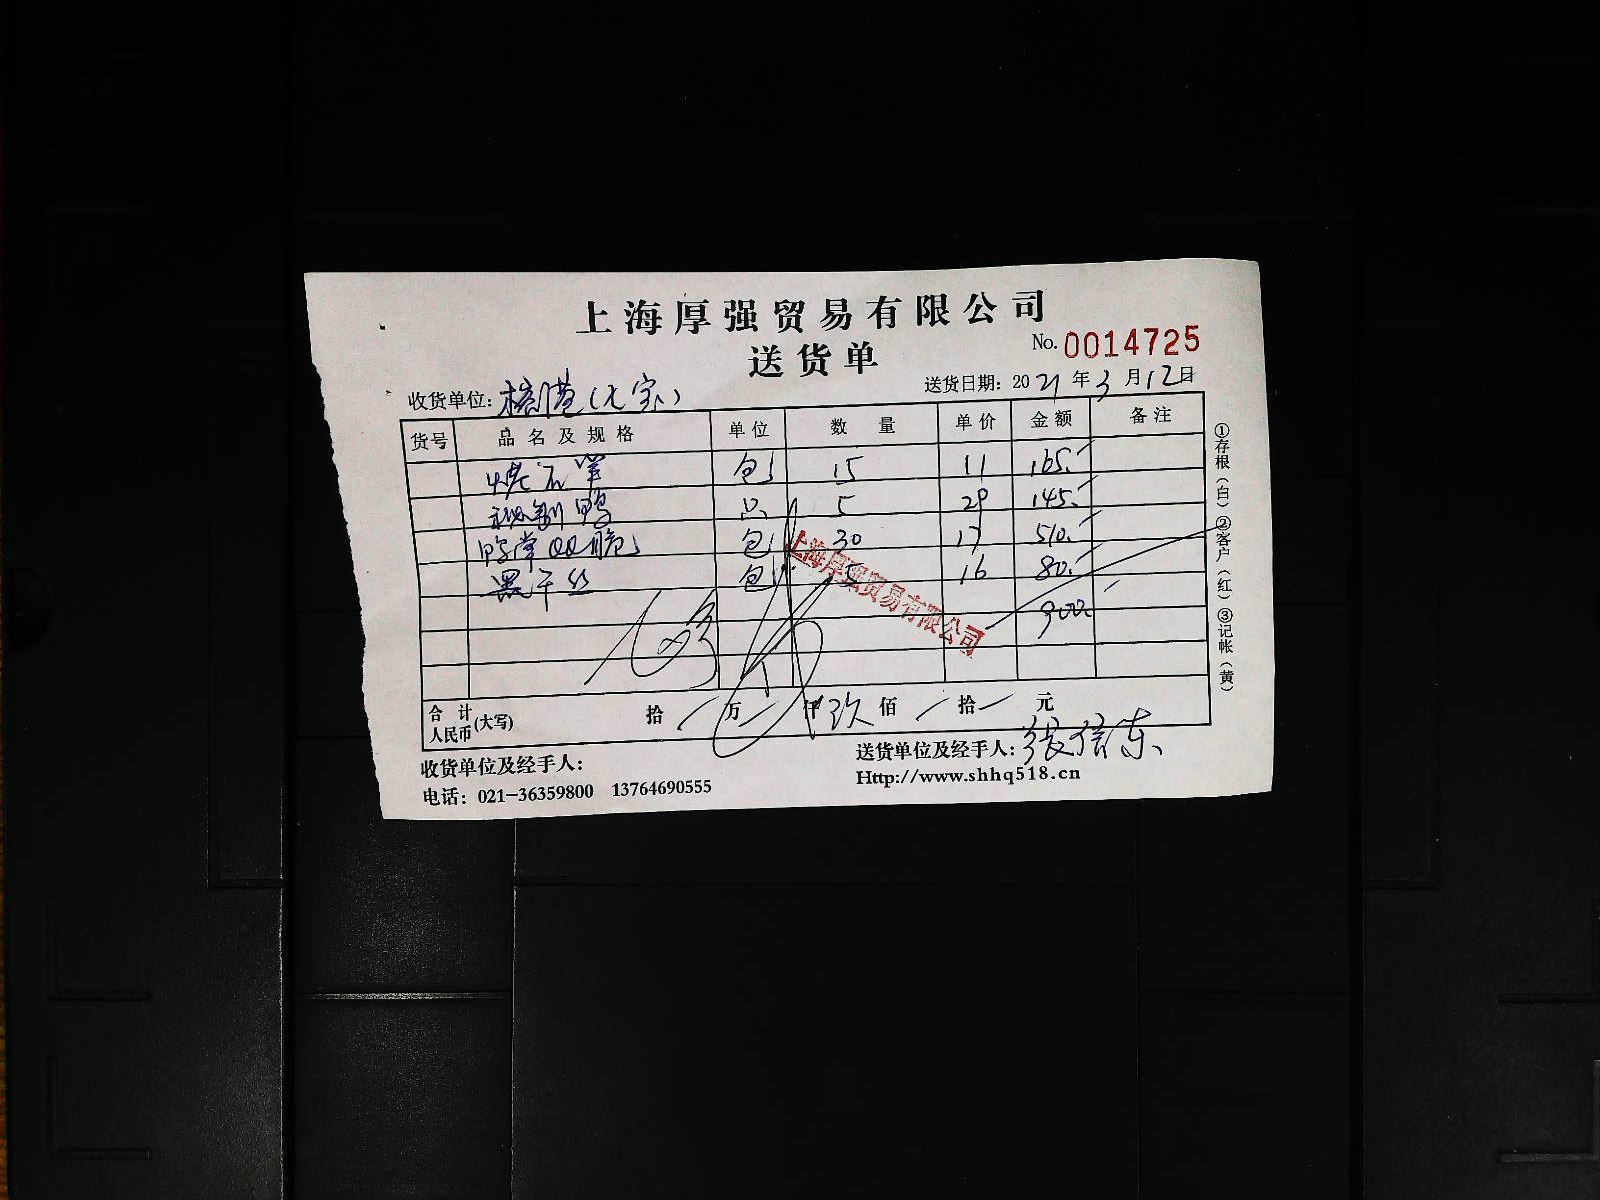 上海厚强贸易有限公司
送货单
No. 0014725
收货单位:
送货日期: 2021年3月12日
货号 品名及规格 单位 数量 单价 金额 备注
包 15 11 165.
秘制鸭 只 5 29 145.
鸭掌QQ脆 包 30 17 510.
黑干丝 包 5 16 80.
900
上海厚强贸易有限公司
合计人民币(大写) 拾 万 仟 玖 佰 拾 元
收货单位及经手人:
送货单位及经手人: 张信东
电话: 021-36359800 13764690555
Http://www.shhq518.cn
①存根(白)②客户(红)③记帐(黄)